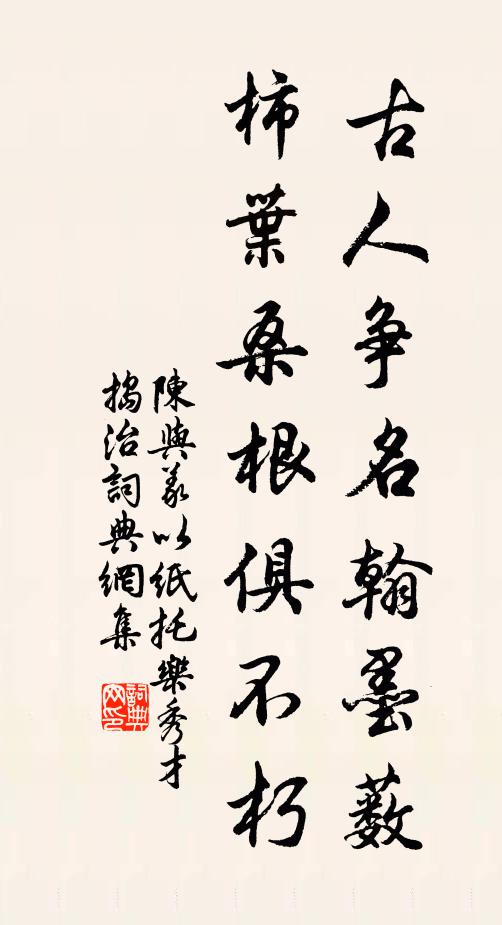 古人争名翰墨薮
柿葉桑根俱不朽
陳與義以紙托樂秀才
搗治詞典網集
詞典网印